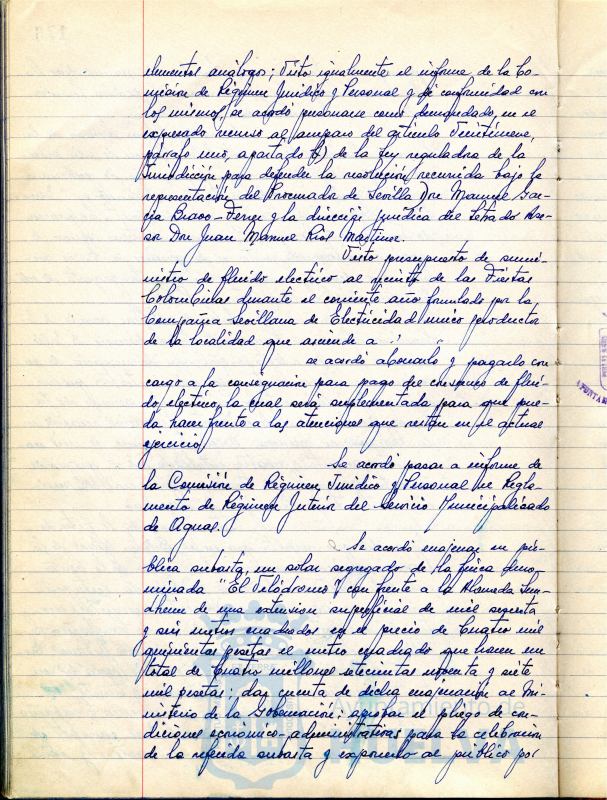 elementos análogos; Visto igualmente el informe de la Co-
misión de Régimen Jurídico y Personal y de conformidad con
los mismos, se acordó personarse como demandado, en el
expresado recurso al amparo del artículo Veintinueve,
párrafo uno, apartado b) de la Ley reguladora de la
Jurisdicción para defender la resolución recurrida bajo la
representación del Procurador de Sevilla Don Manuel Gar-
cía Bravo-Ferrer y la dirección jurídica del Letrado Ase-
sor Don Juan Manuel Ríos Martínez.
Visto presupuesto de sumi-
nistro de fluido eléctrico al recinto de las Fiestas
Colombinas durante el corriente año formulado por la
Compañía Sevillana de Electricidad único productor
de la localidad que asciende a
se acordó abonarlo y pagarlo con
cargo a la consignación para pago del consumo de flui-
do eléctrico, la cual será suplementada para que pue-
da hacer frente a las atenciones que restan en el actual
ejercicio.
Se acordó pasar a informe de
la Comisión de Régimen Jurídico y Personal el Regla-
mento de Régimen Interior del Servicio Municipalizado
de Aguas.
Se acordó enajenar en pú-
blica subasta, un solar segregado de la finca deno-
minada "El Velódromo" con frente a la Alameda Sun-
dheim de una extensión superficial de mil sesenta
y seis metros cuadrados en el precio de Cuatro mil
quinientas pesetas el metro cuadrado que hacen un
total de Cuatro millones setecientas noventa y siete
mil pesetas; dar cuenta de dicha enajenación al Mi-
nisterio de la Gobernación; aprobar el pliego de con-
diciones económico-administrativas para la celebración
de la referida subasta y exponerlo al público por
Ayuntamiento de